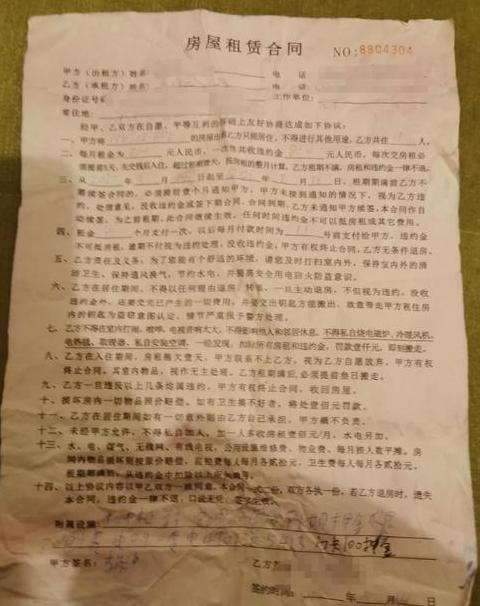 房屋租赁合同 NO:8804304
甲方(出租方)姓名 电 话
乙方(承租方)姓名 电 话
身份证号 工作单位:
常住地:
经甲、乙双方在自愿、平等互利的基础上友好协商达成如下协议:
一、甲方将 的房屋出租乙方只能居住,不得进行其他用途,乙方共住 人。
二、每月租金为 元人民币,一次性共收违约金 元人民币,每次交房租必
须提前5天,先交钱后入住,超过租期壹天,按两租的整月计算,乙方租期不满,房租和违约金一律不退。
三、从 年 月 日起至 年 月 日,租期期满前乙方不
需续签合同的,必须提前壹个月通知甲方,甲方未接到通知的情况下,视为乙方违
约,处理意见,没收违约金或签下期合同,合同到期,乙方未通知甲方续签,本合同作自
动续签,为之前租期,此合同继续生效,任何时间违约金不可以抵房租或其它费用。
四、租金 个月支付一次,以后每月付款时间为 号前支付给甲方,违约金
不可抵房租,逾期不付视为违约处理,没收违约金,甲方有权终止合同,乙方无条件退房。
五、乙方责任及义务:为了能有个舒适的环境,请您及时打扫室内外,保持室内外的清
洁卫生、保持通风换气,节约水电,并提高安全用电防火防盗意识。
六、乙方在居住期间,不得以任何理由退房、转租,一旦主动退房,不但视为违约,没收
违约金外,还要交完已产生的一切费用,并要交出钥匙方能搬出,故意带走甲方租住房
内的钥匙为盗窃意图认定,情节严重报予警方处理。
七、乙方不得在室内打闹、喧哗、电视音响大大,不得影响他人和邻居休息,不得私自烧电磁炉、冷暖风机、
电热毯、取暖器、私自安装空调,一经发现,扣除所有房租和违约金,罚款壹仟元,即刻搬走。
八、乙方在入住期间,房租拖欠壹天,甲方联系不上乙方,视为乙方自愿放弃,甲方有权
终止合同,其室内物品,视作无主处理,乙方租期满后,必须提前叁日搬走。
九、乙方一旦违反以上几条给属违约,甲方有权终止合同,收回房屋。
十、损坏房内一切物品照价赔偿。如有卫生搞不好者,将处壹佰元罚款。
十一、乙方在居住期间如有一切意外则由乙方自己承担,甲方概不负责。
十二、未经甲方允许,不得私自加人,加一人多收房租壹佰元/月,水电另加。
十三、水、电、煤气、无线网、有线电视,公用设施维修费、物业费、每月按人数平摊。房
间内物品损坏则按原价赔偿,宽带费每人每月各贰拾元,卫生费每人每月各贰拾元。
租期期满后,从违约金中扣除以上应欠费等。
十四、以上协议内容以甲乙双方一致同意,本合同一式二份,双方各执一份,若乙方退房时,遗失
本合同,违约金一律不退,口说无凭,签字生效。
附属设施:
门卡100押金
甲方签名: 乙方
签约时间: 年 月 日